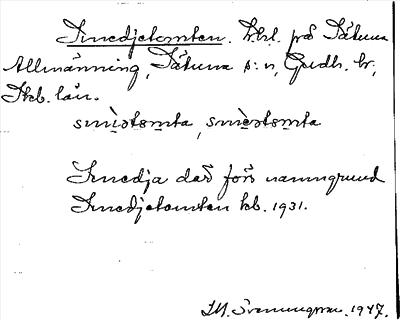 Smedjetomten. Lhl. på Sätuna
Allmänning, Sätuna s:n, Gudh. hr,
Skb. län.
smìdtsmta, smèdtsmta
Smedja där förr namngrund
Smedjetomten hb. 1931.
1947.